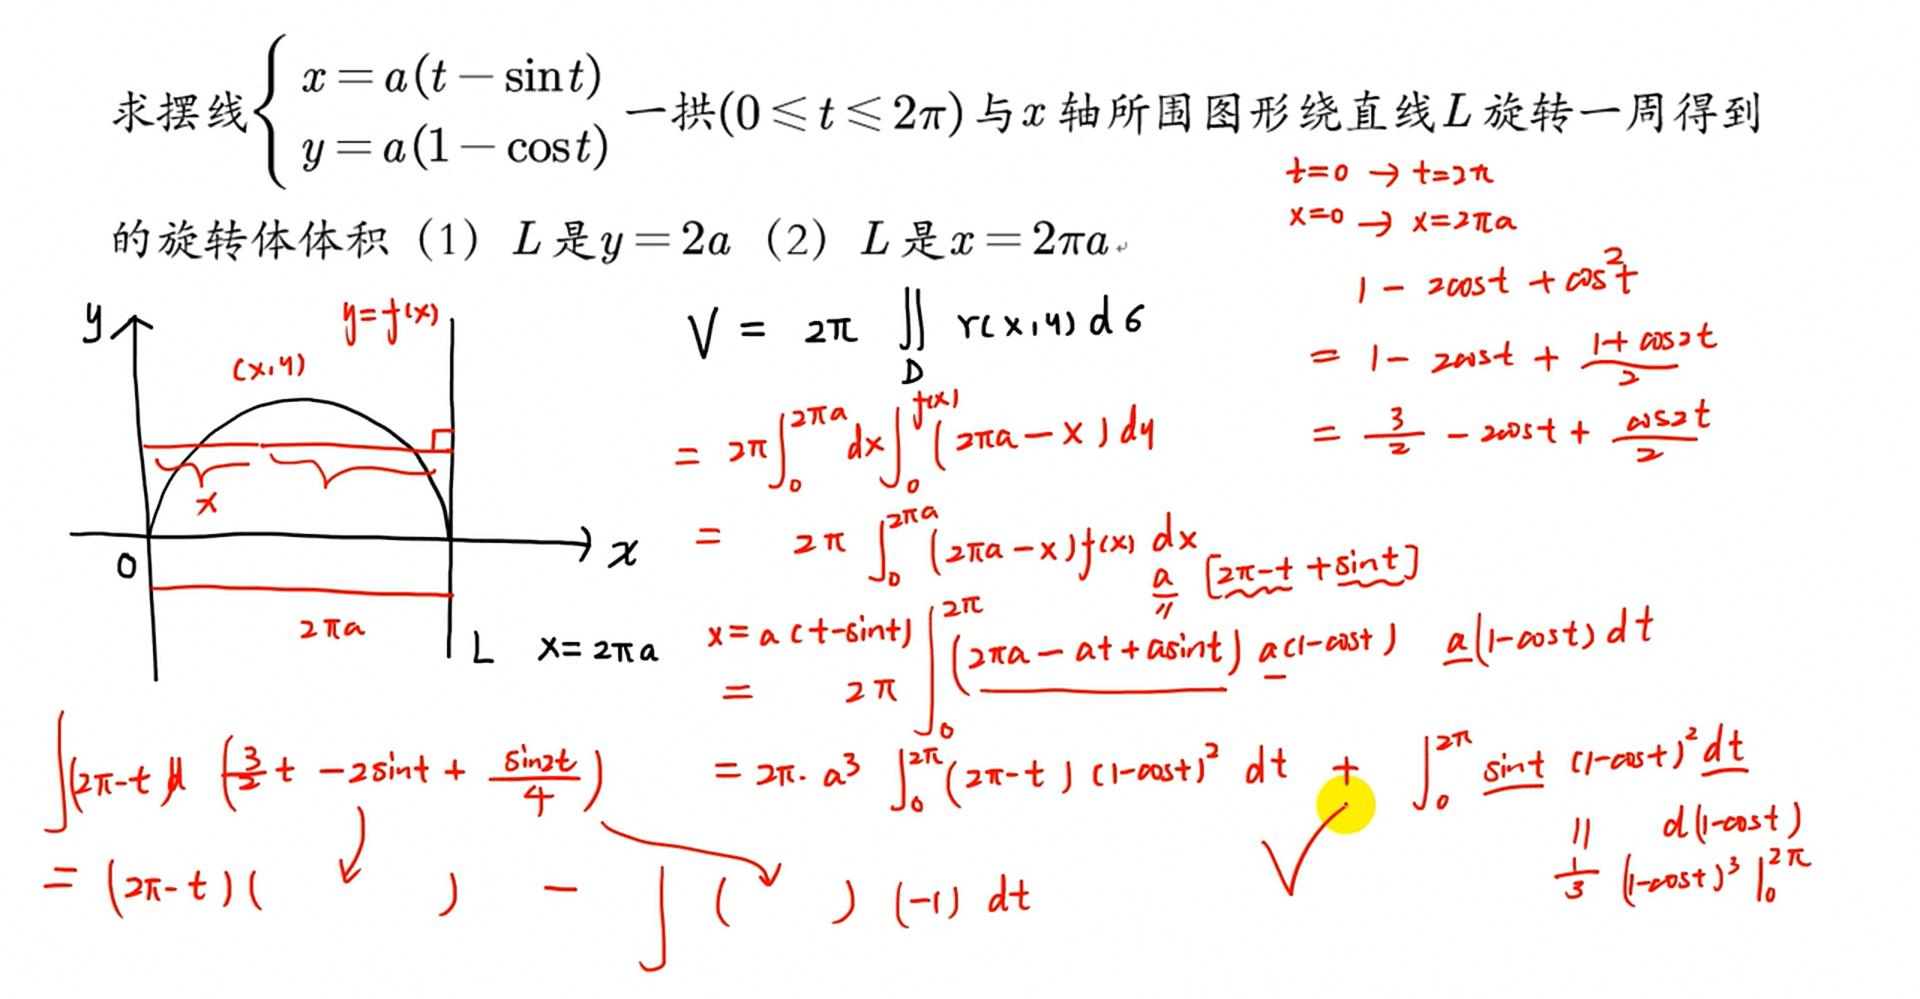 求摆线 { x = a(t − sint) y = a(1 − cost) 一拱(0 ⩽ t ⩽ 2π)与x轴所围图形绕直线L旋转一周得到
的旋转体体积（1）L是y = 2a（2）L是x = 2πa
t=0 → t=2π
x=0 → x=2πa
1 − 2cost + cos²t
= 1 − 2cost + (1+cos2t)/2
= 3/2 − 2cost + cos2t/2
y
y=f(x)
(x,y)
x
0
x
2πa
L x=2πa
V = 2π ∬_D r(x,y) dσ
= 2π ∫_0^{2πa} dx ∫_0^{f(x)} (2πa − x) dy
= 2π ∫_0^{2πa} (2πa − x) f(x) dx
a [2π−t + sint]
||
x = a(t−sint)
= 2π ∫_0^{2π} (2πa − at + asint) a(1−cost) a(1−cost) dt
= 2π · a³ ∫_0^{2π} (2π−t) (1−cost)² dt + ∫_0^{2π} sint (1−cost)² dt
|| d(1−cost)
1/3 (1−cost)³ |_0^{2π}
∫(2π−t) d (3/2 t − 2sint + sin2t/4)
= (2π−t) ( ) − ∫ ( ) (−1) dt